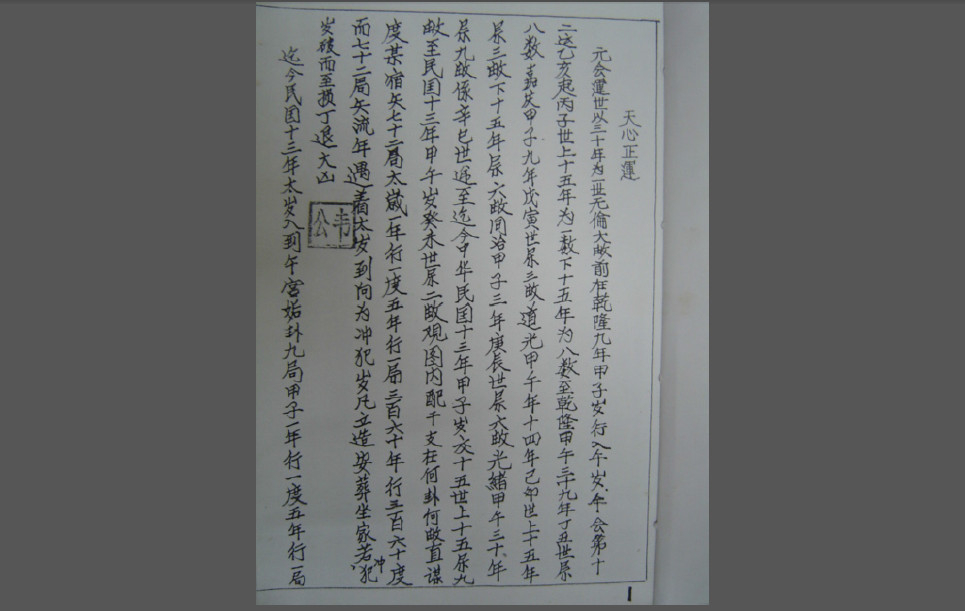 天心正運
元会運世以三十年为一世无倫大畝前在乾隆九年甲子岁行入午岁午会第十
二运乙亥起丙子世上十五年为一数下十五年为八数至乾隆甲午三十九年丁丑世屌
八数嘉庆甲子九年戊寅世屌三畝道光甲午年十四年己卯世上十五年
屌三畝下十五年屌六畝同治甲子三年庚辰世屌六畝光緒甲午三十年
屌九畝係辛巳世递至迄今中华民国十三年甲子岁交十五世上十五屌九
畝至民国十三年甲午岁癸未世屌二畝观图内配干支在何卦何畝直谋
度某宿矢七十二局太歲一年行一度五年行一局三百六十年行三百六十度
而七十二局矢流年遇着太岁到向为冲犯岁凡立造安葬坐家若冲犯
岁破而至损丁退大凶
韦公
迄今民国十三年太岁入到午宫姤卦九局甲子一年行一度五年行一局
1